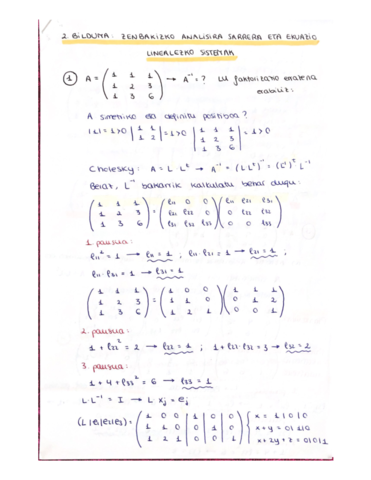 2. BILDUMA: ZENBAKIZKO ANALISIRA SARRERA ETA EKUAZIO
LINEALEZKO SISTEMAK
① A = ( 1 1 1 ; 1 2 3 ; 1 3 6 ) → A⁻¹ = ? LU faktorizazio erabiliz:
A simetriko eta definitu positiboa?
|1| = 1 > 0 | 1 1 ; 1 2 | = 1 > 0 | 1 1 1 ; 1 2 3 ; 1 3 6 | = 1 > 0
Cholesky: A = L Lᵗ → A⁻¹ = (L Lᵗ)⁻¹ = (L⁻¹)ᵗ L⁻¹
Beraz, L⁻¹ bakarrik kalkulatu behar dugu:
( 1 1 1 ; 1 2 3 ; 1 3 6 ) = ( l₁₁ 0 0 ; l₂₁ l₂₂ 0 ; l₃₁ l₃₂ l₃₃ ) ( l₁₁ l₂₁ l₃₁ ; 0 l₂₂ l₃₂ ; 0 0 l₃₃ )
1. pausua:
l₁₁² = 1 → l₁₁ = 1 , l₁₁ · l₂₁ = 1 → l₂₁ = 1 ,
l₁₁ · l₃₁ = 1 → l₃₁ = 1
( 1 1 1 ; 1 2 3 ; 1 3 6 ) = ( 1 0 0 ; 1 1 0 ; 1 2 1 ) ( 1 1 1 ; 0 1 2 ; 0 0 1 )
2. pausua:
1 + l₂₂² = 2 → l₂₂ = 1 ; 1 + l₂₂ · l₃₂ = 3 → l₃₂ = 2
3. pausua:
1 + 4 + l₃₃² = 6 → l₃₃ = 1
L · L⁻¹ = I → L xⱼ = eⱼ
(L|e₁|e₂|e₃) = ( 1 0 0 | 1 | 0 | 0 ; 1 1 0 | 0 | 1 | 0 ; 1 2 1 | 0 | 0 | 1 ) { x = 1|0|0 ; x + y = 0|1|0 ; x + 2y + z = 0|0|1